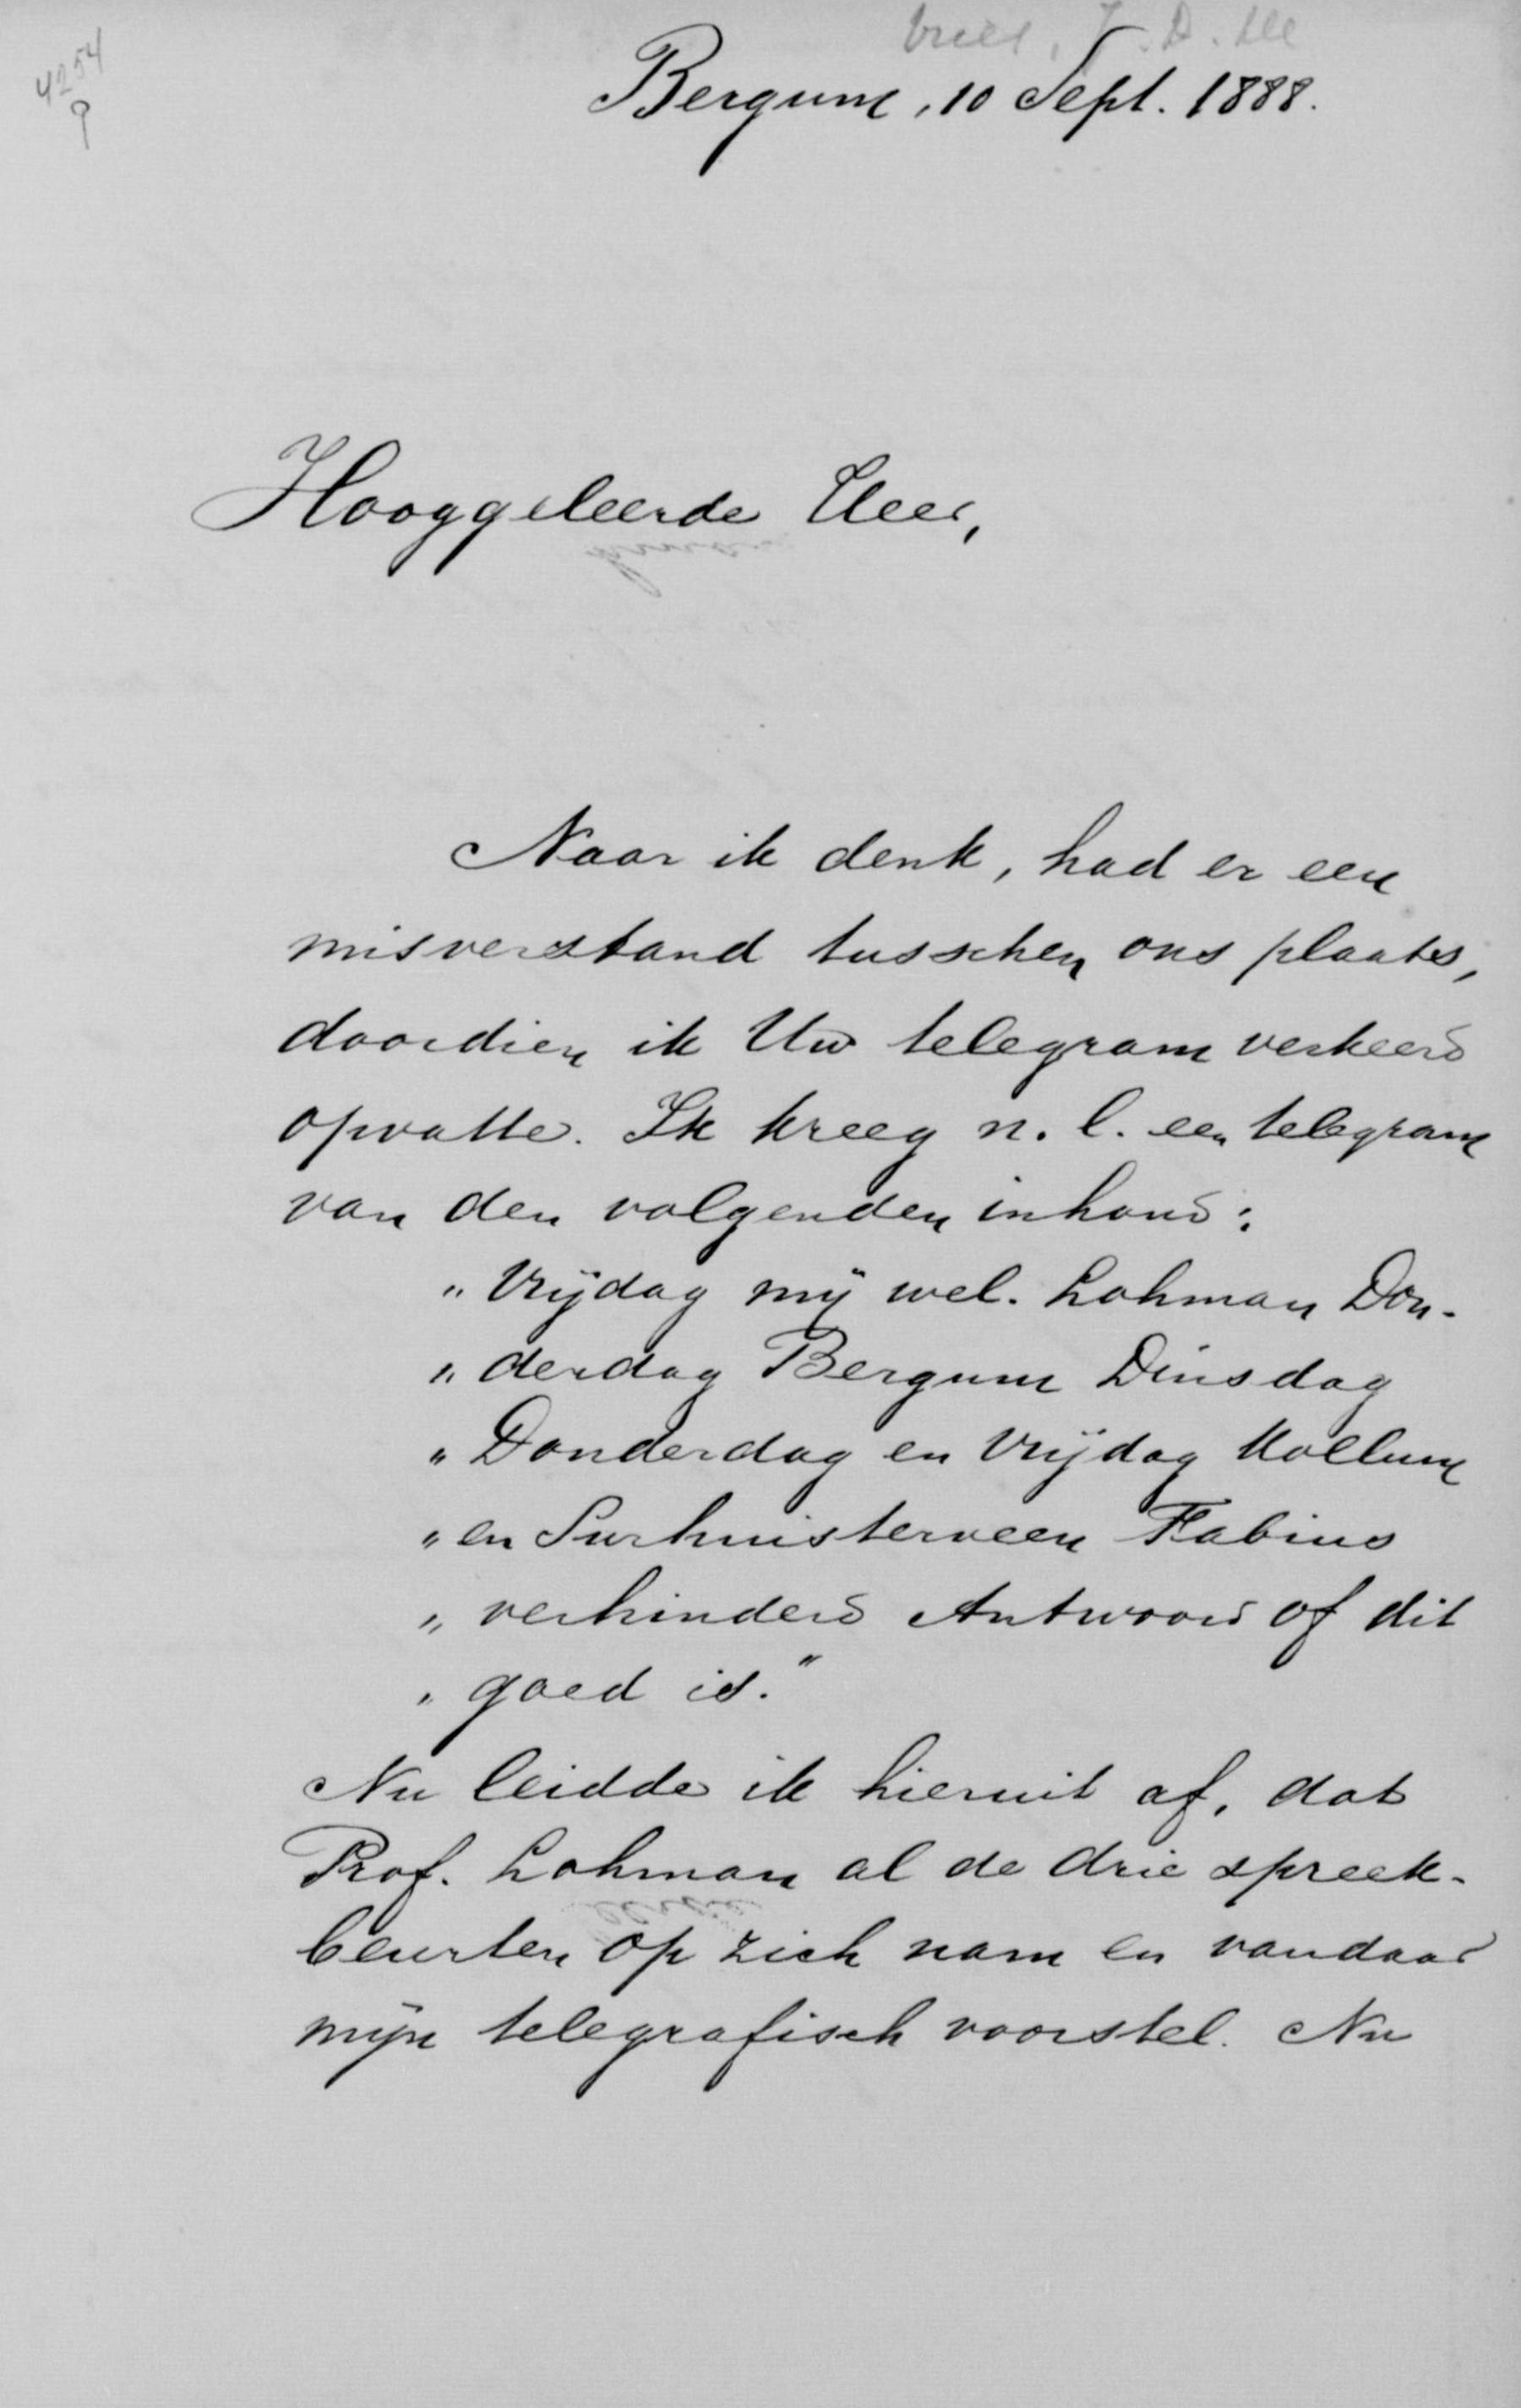 4254
Bergum, 10 Sept. 1888.
Hooggeleerde Heer,
Naar ik denk, had er een
misverstand tusschen ons plaats,
doordien ik Uw telegram verkeerd
opvatte. Ik kreeg n. l. een telegram
van den volgenden inhoud:
„Vrijdag mij wel. Lohman Don-
„derdag Bergum Dinsdag
„Donderdag en Vrijdag Kollum
„en Surhuisterveen Fabius
„verhinderd Antwoord of dit
„goed is.“
Nu leidde ik hieruit af, dat
Prof. Lohman al de drie spreek-
beurten op zich nam en vandaar
mijn telegrafisch voorstel. Nu